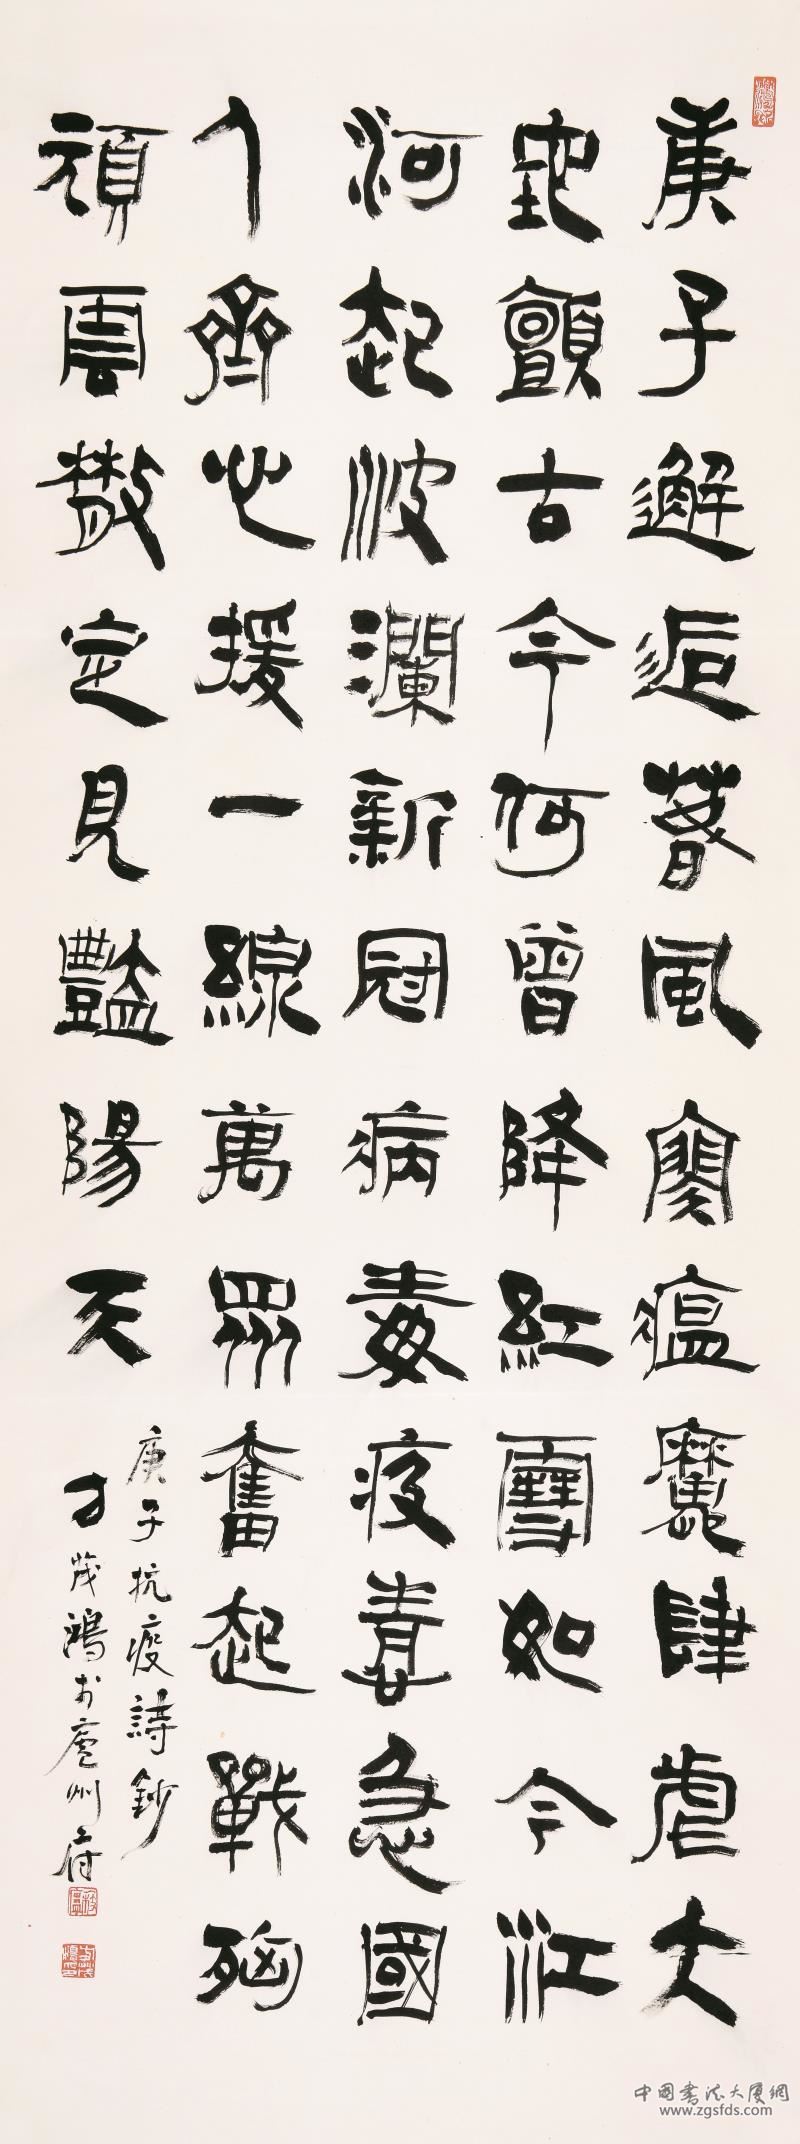 庚子邂逅春風寥瘟魔肆虐大
地顫古今何曾降紅雪如今江
河起波瀾新冠病毒疫情急國
人齊心援一線萬眾奮起戰
頑雲散定見豔陽天
庚子抗疫詩鈔
方茂鴻於廬州府
中国书法大厦網
www.zgsfds.com